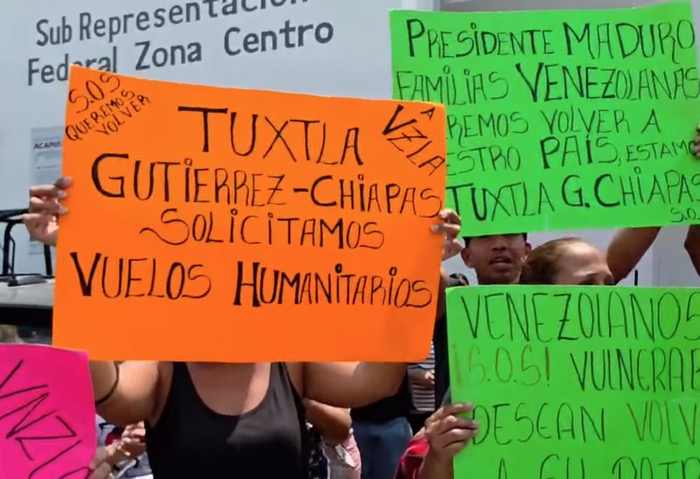 Sub Representación
Federal Zona Centro
ACAPU
S.O.S
QUEREMOS
VOLVER
A
VZLA
TUXTLA
GUTIERREZ-CHIAPAS
SOLICITAMOS
VUELOS HUMANITARIOS
PRESIDENTE MADURO
FAMILIAS VENEZOLANAS
REMOS VOLVER A
ESTRO PAÍS, ESTAMO
TUXTLA G. CHIAPAS
S.O
VENEZOLANOS
¡S.O.S! VULNERAB
DESEAN VOLV
A SU PATRI
VNZL